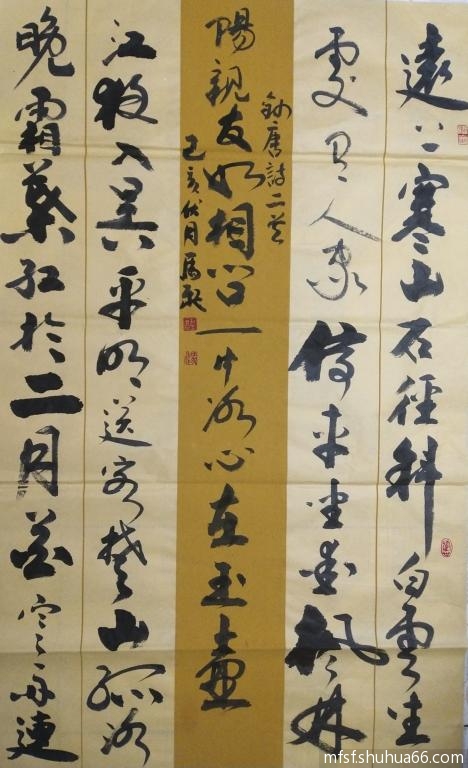 遠上寒山石徑斜白雲生
處有人家停車坐愛楓林
晚霜葉紅於二月花寒雨連
江夜入吳平明送客楚山孤洛
陽親友如相問一片冰心在玉壺
錄唐詩二首
己亥伏月
mfsf.shuhua66.com